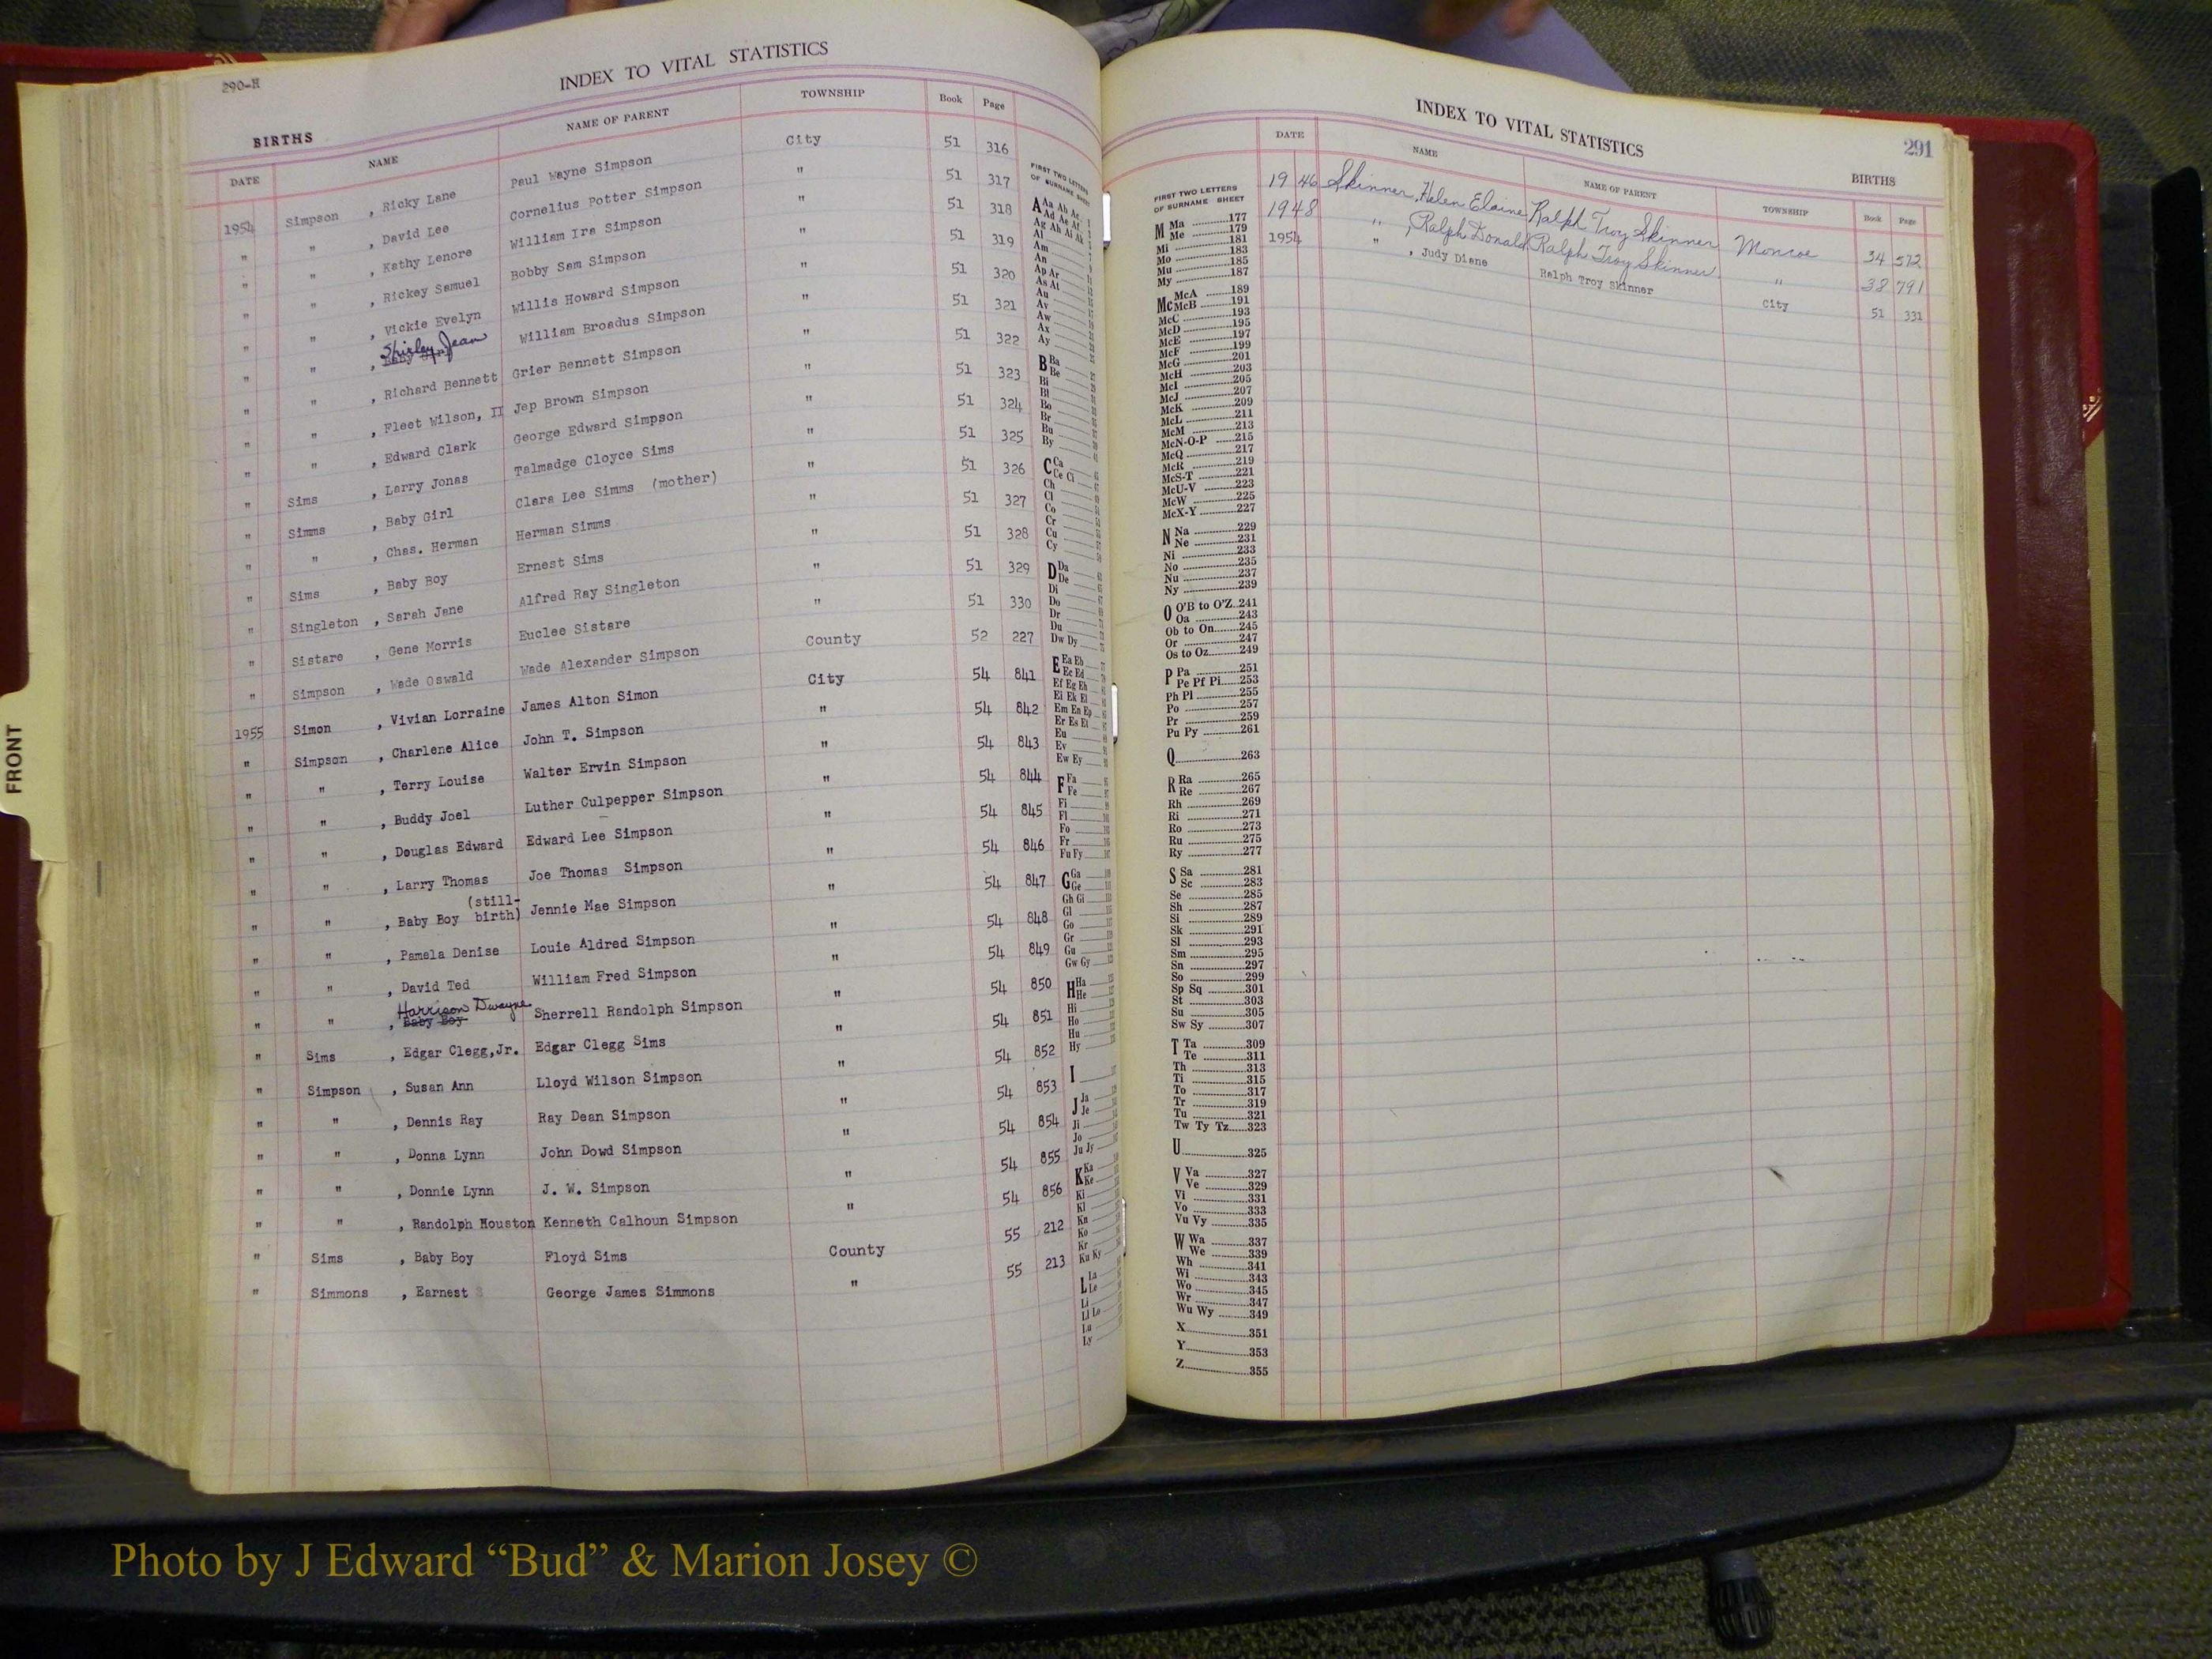 290-H
INDEX TO VITAL STATISTICS
BIRTHS
DATE NAME NAME OF PARENT TOWNSHIP Book Page
1954 Simpson , Ricky Lane Paul Wayne Simpson City 51 316
" " , David Lee Cornelius Potter Simpson " 51 317
" " , Kathy Lenore William Ira Simpson " 51 318
" " , Rickey Samuel Bobby Sam Simpson " 51 319
" " , Vickie Evelyn Willis Howard Simpson " 51 320
" " , Shirley Jean William Broadus Simpson " 51 321
" " , Richard Bennett Grier Bennett Simpson " 51 322
" " , Fleet Wilson, II Jep Brown Simpson " 51 323
" " , Edward Clark George Edward Simpson " 51 324
" Sims , Larry Jonas Talmadge Cloyce Sims " 51 325
" Simms , Baby Girl Clara Lee Simms (mother) " 51 326
" " , Chas. Herman Herman Simms " 51 327
" Sims , Baby Boy Ernest Sims " 51 328
" Singleton , Sarah Jane Alfred Ray Singleton " 51 329
" Sistare , Gene Morris Euclee Sistare " 51 330
" Simpson , Wade Oswald Wade Alexander Simpson County 52 227
1955 Simon , Vivian Lorraine James Alton Simon City 54 841
" Simpson , Charlene Alice John T. Simpson " 54 842
" " , Terry Louise Walter Ervin Simpson " 54 843
" " , Buddy Joel Luther Culpepper Simpson " 54 844
" " , Douglas Edward Edward Lee Simpson " 54 845
" " , Larry Thomas Joe Thomas Simpson " 54 846
" " , Baby Boy (still-birth) Jennie Mae Simpson " 54 847
" " , Pamela Denise Louie Aldred Simpson " 54 848
" " , David Ted William Fred Simpson " 54 849
" " , Harrison Dwayne Baby Boy Sherrell Randolph Simpson " 54 850
" Sims , Edgar Clegg,Jr. Edgar Clegg Sims " 54 851
" Simpson , Susan Ann Lloyd Wilson Simpson " 54 852
" " , Dennis Ray Ray Dean Simpson " 54 853
" " , Donna Lynn John Dowd Simpson " 54 854
" " , Donnie Lynn J. W. Simpson " 54 855
" " , Randolph Houston Kenneth Calhoun Simpson " 54 856
" Sims , Baby Boy Floyd Sims County 55 212
" Simmons , Earnest George James Simmons " 55 213
FIRST TWO LETTERS
OF SURNAME SHEET
A Aa Ab Ac
Ad Ae Af
Ag Ah Ai Ak
Al
Am
An
Ap Ar
As At
Au
Av
Aw
Ax
Ay
B Ba
Be
Bi
Bl
Bo
Br
Bu
By
C Ca
Ce Ci
Ch
Cl
Co
Cr
Cu
Cy
D Da
De
Di
Do
Dr
Du
Dw Dy
E Ea Eb
Ec Ed
Ef Eg Eh
Ei Ek El
Em En Ep
Er Es Et
Eu
Ev
Ew Ey
F Fa
Fe
Fi
Fl
Fo
Fr
Fu Fy
G Ga
Ge
Gh Gi
Gl
Go
Gr
Gu
Gw Gy
H Ha
He
Hi
Ho
Hu
Hy
I
J Ja
Je
Ji
Jo
Ju Jy
K Ka
Ke
Ki
Kl
Kn
Ko
Kr
Ku Ky
L La
Le
Li
Ll Lo
Lu
Ly
FRONT
INDEX TO VITAL STATISTICS
291
BIRTHS
DATE NAME NAME OF PARENT TOWNSHIP Book Page
1946 Skinner, Helen Elaine Ralph Troy Skinner Monroe 34 572
1948 " , Ralph Donald Ralph Troy Skinner " 38 791
1954 " , Judy Diane Ralph Troy Skinner City 51 331
FIRST TWO LETTERS
OF SURNAME SHEET
M Ma 177
Me 179
Mi 181
Mo 183
Mu 185
My 187
Mc McA 189
McB 191
McC 193
McD 195
McE 197
McF 199
McG 201
McH 203
McI 205
McJ 207
McK 209
McL 211
McM 213
McN-O-P 215
McQ 217
McR 219
McS-T 221
McU-V 223
McW 225
McX-Y 227
N Na 229
Ne 231
Ni 233
No 235
Nu 237
Ny 239
O O'B to O'Z 241
Oa 243
Ob to On 245
Or 247
Os to Oz 249
P Pa 251
Pe Pf Pi 253
Ph Pl 255
Po 257
Pr 259
Pu Py 261
Q 263
R Ra 265
Re 267
Rh 269
Ri 271
Ro 273
Ru 275
Ry 277
S Sa 281
Sc 283
Se 285
Sh 287
Si 289
Sk 291
Sl 293
Sm 295
Sn 297
So 299
Sp Sq 301
St 303
Su 305
Sw Sy 307
T Ta 309
Te 311
Th 313
Ti 315
To 317
Tr 319
Tu 321
Tw Ty Tz 323
U 325
V Va 327
Ve 329
Vi 331
Vo 333
Vu Vy 335
W Wa 337
We 339
Wh 341
Wi 343
Wo 345
Wr 347
Wu Wy 349
X 351
Y 353
Z 355
Photo by J Edward “Bud” & Marion Josey ©